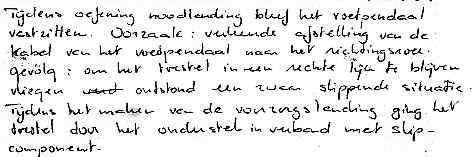 Tijdens oefening noodlanding bleef het voetpendaal
vastzitten. Oorzaak: verkeerde afstelling van de
kabel van het voetpendaal naar het richtingsroer.
gevolg: om het toestel in een rechte lijn te blijven
vliegen ontstond een zwaar slippende situatie.
Tijdens het maken van de voorzorgslanding ging het
toestel door het onderstel in verband met slip-
component.